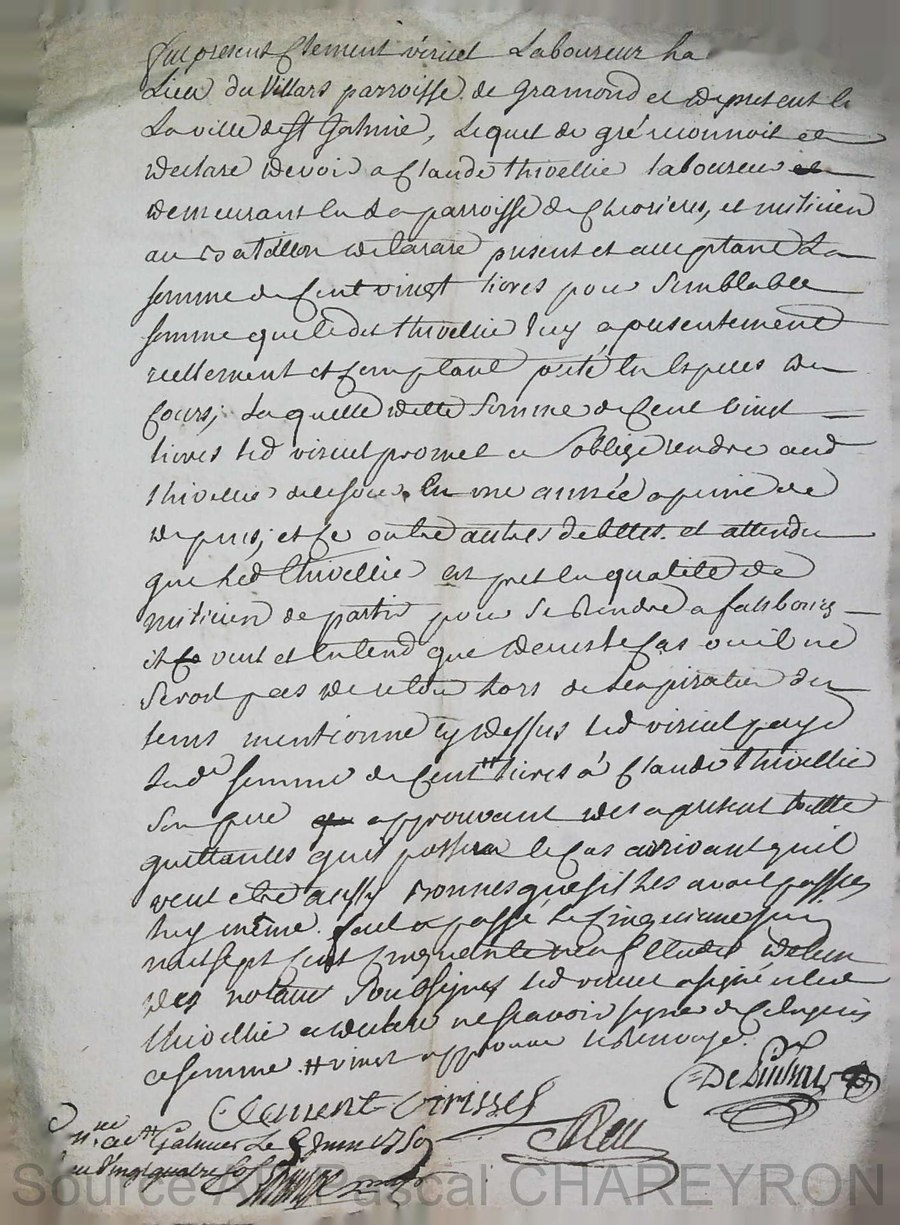 fut présent Clement viricel Laboureur ha
Lieu du Villars parroisse de Gramond et de present
La ville de St Galmie, Lequel de gré reconnoit et
declare devoir a Claude thivellie laboureur
demeurant en la parroisse de Chevrieres, et milicien
au Batallon de tarare présent et acceptant La
somme de Cent vingt livres pour Semblable
somme que ledit thivellie luy a presentement
reellement et Comptant preté en Especes de
Cours, La quelle dette Somme de Cent vingt
livres led viricel promet et s'oblige rendre aud
thivellie En une année a peine de
depens, et outre autres debtes. et attendu
que led thivellie est pret en qualité de
milicien de partir pour Se Rendre a falsbourg
il veut et Entend que dans le Cas ou il ne
Seroit pas de retour lors de l'expiration du
tems mentionné cy dessus led viricel paye
lad somme de Cent # livres a Claude thivellie
Son pere approuvant des a present toutte
quittances qu'il passera le Cas arrivant qu'il
veut etre aussy Bonnes que s'il les avoit passées
luy même. fait et passé le Cinquieme juin
mil sept Cent Cinquante neuf Etude de l'un
des notaires Soussignes led viricel a signé et led
thivellie a declaré ne scavoir signer de Ce enquis
et somme. # vingt approuvé le renvoye.
Clement Viricel
St Galmier Le 5 Juin 1759
vingt quatre sols
Source AD Pascal CHAREYRON